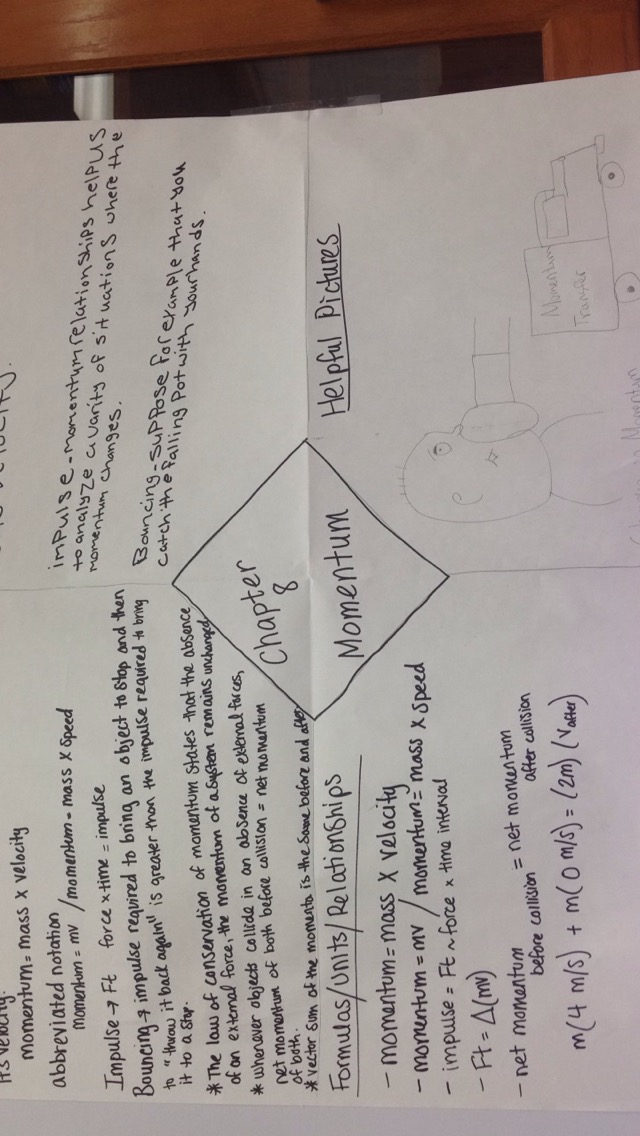 its velocity.
momentum = mass x velocity
abbreviated notation
momentum = mv / momentum = mass x speed
Impulse → Ft force x time = impulse
Bouncing → impulse required to bring an object to stop and then
to "throw it back again" is greater than the impulse required to bring
it to a stop.
* The law of conservation of momentum states that the absence
of an external force, the momentum of a system remains unchanged.
* whenever objects collide in an absence of external forces,
net momentum of both before collision = net momentum
of both.
* vector sum of the momenta is the same before and after
velocity.
impulse-momentum relationships help us
to analyze a varity of situations where the
momentum changes.
Bouncing-suppose for example that you
catch the falling pot with your hands.
Chapter
8
Momentum
Formulas/Units/Relationships
- momentum = mass x velocity
- momentum = mv / momentum = mass x speed
- impulse = Ft ~ force x time interval
- Ft = Δ(mv)
- net momentum = net momentum
before collision after collision
m(4 m/s) + m(0 m/s) = (2m) (Vafter)
Helpful Pictures
Momentum
Transfer
Momentum